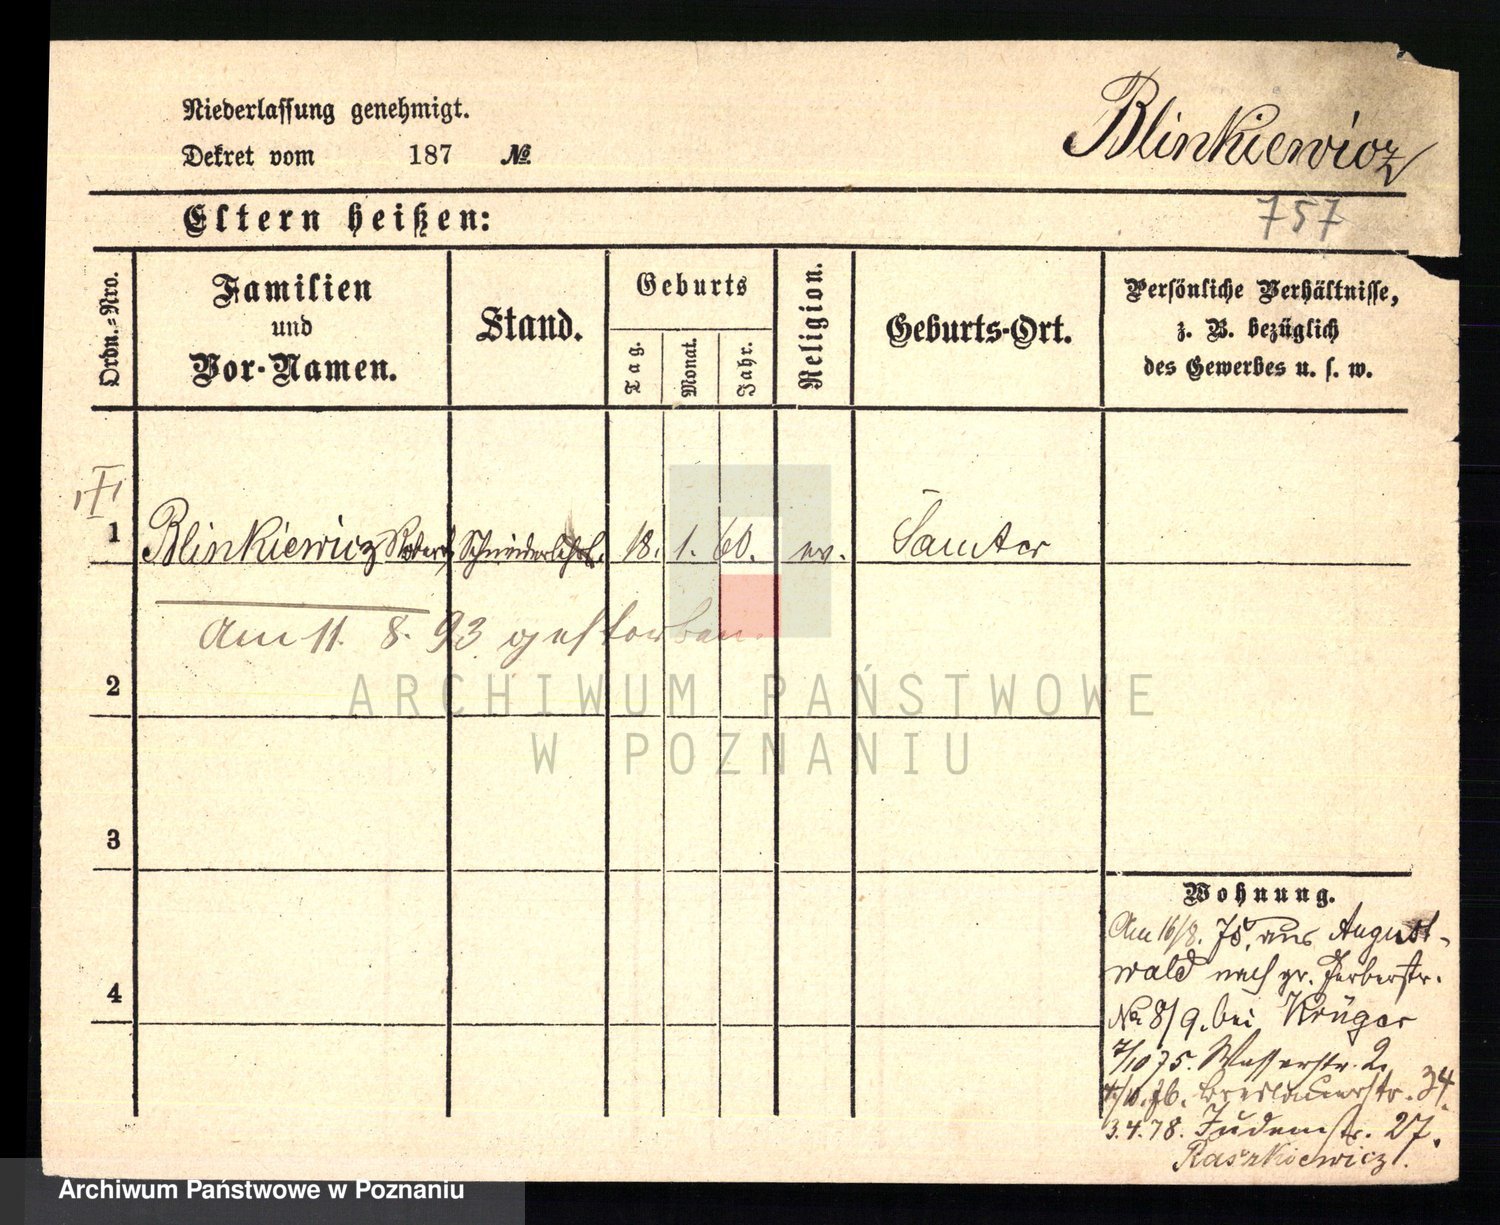 Niederlassung genehmigt.
Dekret vom 187 №
Blinkiewicz
757
Eltern heißen:
Ordn.=Nro.
Familien
und
Vor-Namen.
Stand.
Geburts
Tag.
Monat.
Jahr.
Religion.
Geburts-Ort.
Persönliche Verhältnisse,
z. B. bezüglich
des Gewerbes u. s. w.
1 Blinkiewicz Robert Schneiderlehrl. 18. 1. 60. ev. Samter
Am 11. 8. 93 gestorben.
2
3
4
Wohnung.
Am 16/8. 75. aus August-
wald nach gr. Gerberstr.
No 8/9. bei Krüger
7/10 75. Wasserstr. 2.
76. Breslauerstr. 34.
3.4.78. Judenstr. 27.
Raszkiewicz.
ARCHIWUM PAŃSTWOWE
W POZNANIU
Archiwum Państwowe w Poznaniu